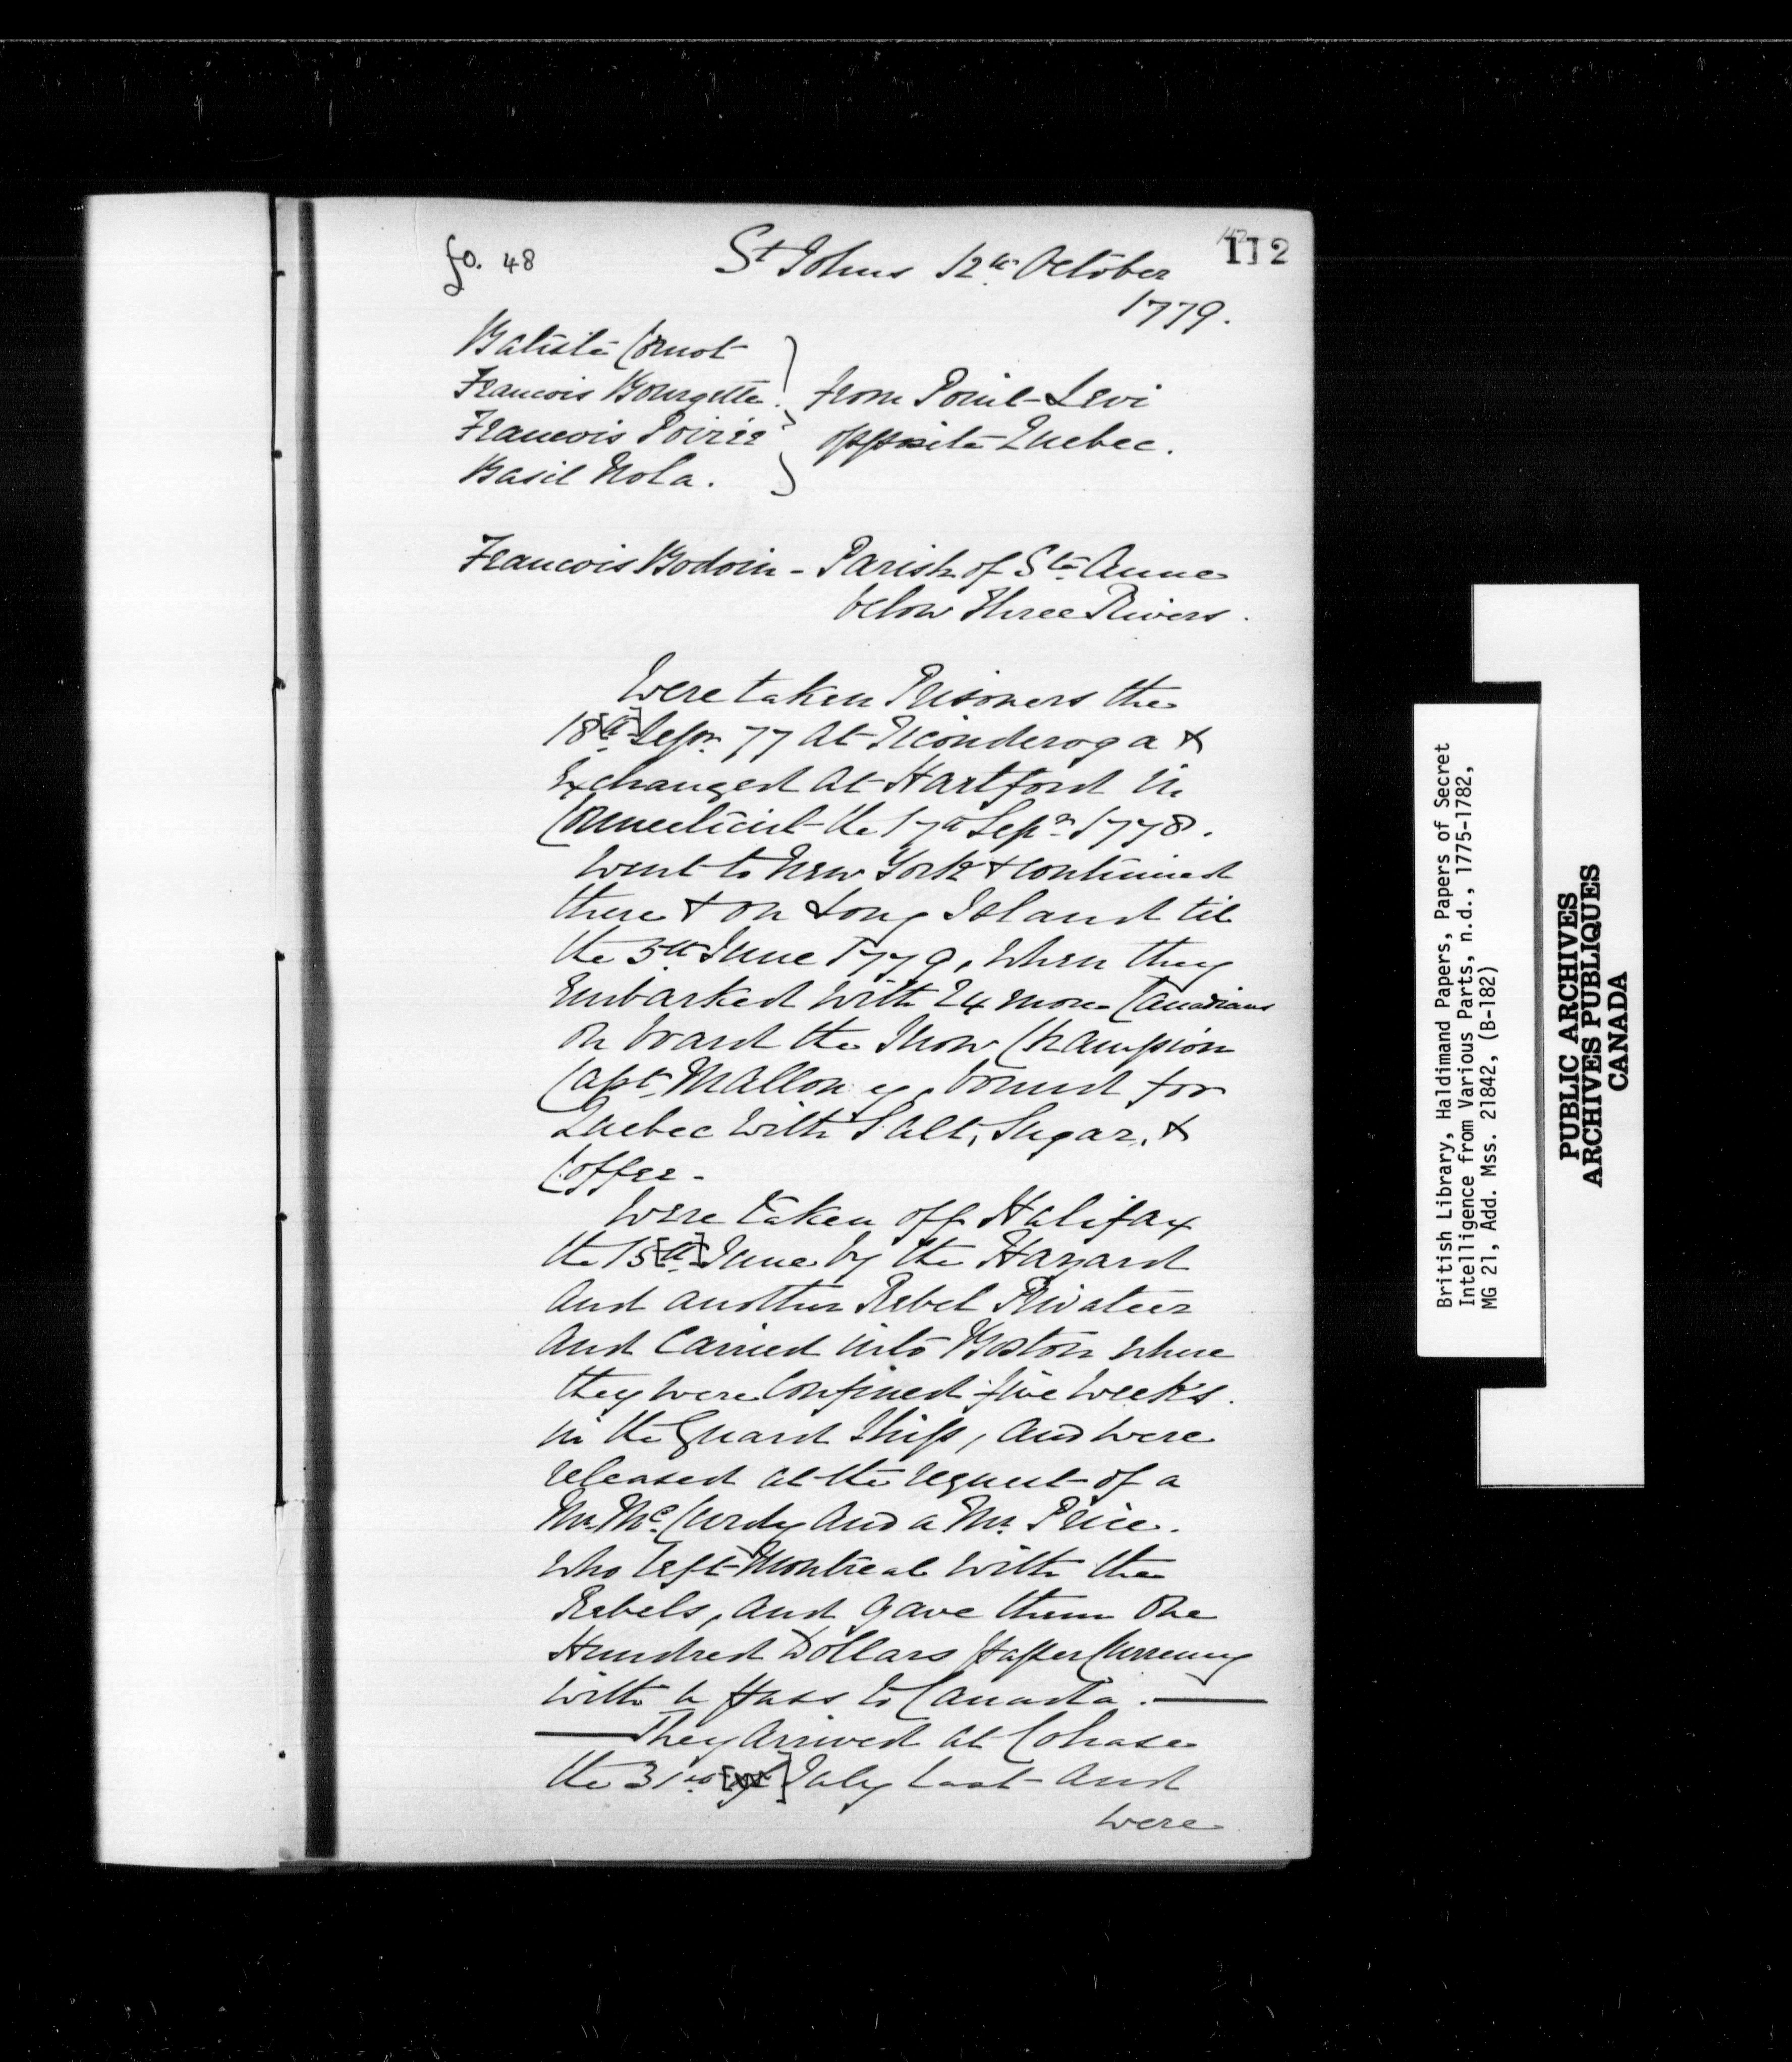 fo. 48
St Johns 12th October
112
1779.
Batiste Cornot
Francois Bourgette
Francois Poirie
Basil Nola.
from Point Levi
opposite Quebec.
Francois Bodoin - Parish of Ste Anne
below Three Rivers.
Were taken Prisoners the
18[th] Sepr 77 at Ticonderoga &
Exchanged at Hartford in
Connecticut the 17th Sepr 1778.
Went to New York & continued
there & on Long Island til
the 5th June 1779, when they
Embarked with 24 more Canadians
on board the Snow Champion
Capt. Malloney, bound for
Quebec with Salt, Sugar, &
Coffee -
Were taken off Halifax
the 15[th] June by the Hazard
and another Rebel Privateer
and carried into Boston where
they were confined five Weeks.
in the Guard Ship, and were
released at the request of a
Mr. Mc.Curdy and a Mr. Price.
who left Montreal with the
Rebels, and gave them One
Hundred Dollars paper Currency
with a pass to Canada. —
— They arrived at Cohase
the 31st July last and
were
British Library, Haldimand Papers, Papers of Secret
Intelligence from Various Parts, n.d., 1775-1782,
MG 21, Add. Mss. 21842, (B-182)
PUBLIC ARCHIVES
ARCHIVES PUBLIQUES
CANADA